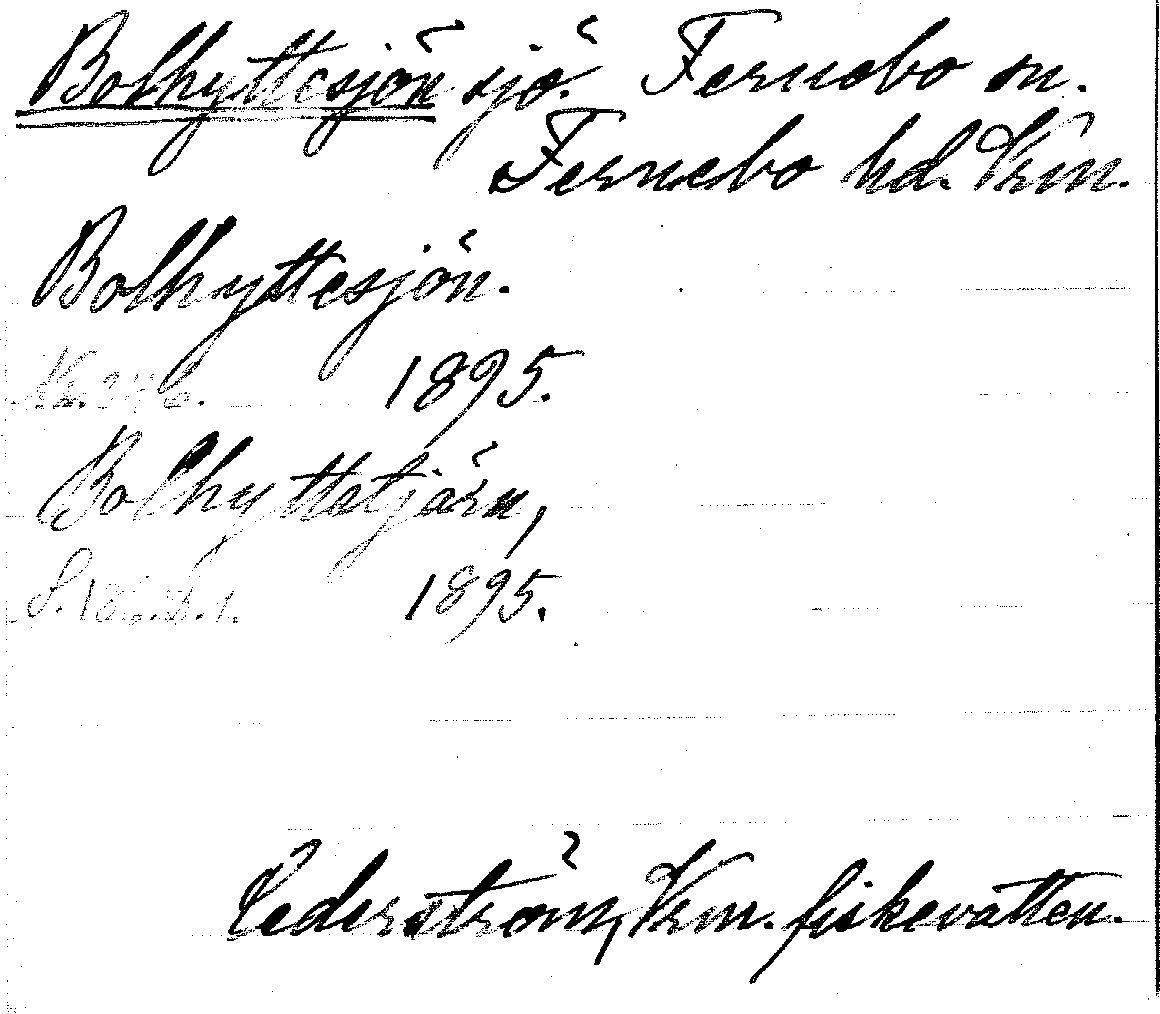 Bolhyttesjön sjö. Fernebo sn.
Fernebo hd. Vrm.
Bolhyttesjön.
1895.
Bolhyttetjärn,
S. 186. 1.
1895.
Cederström, Vrm. fiskevatten.